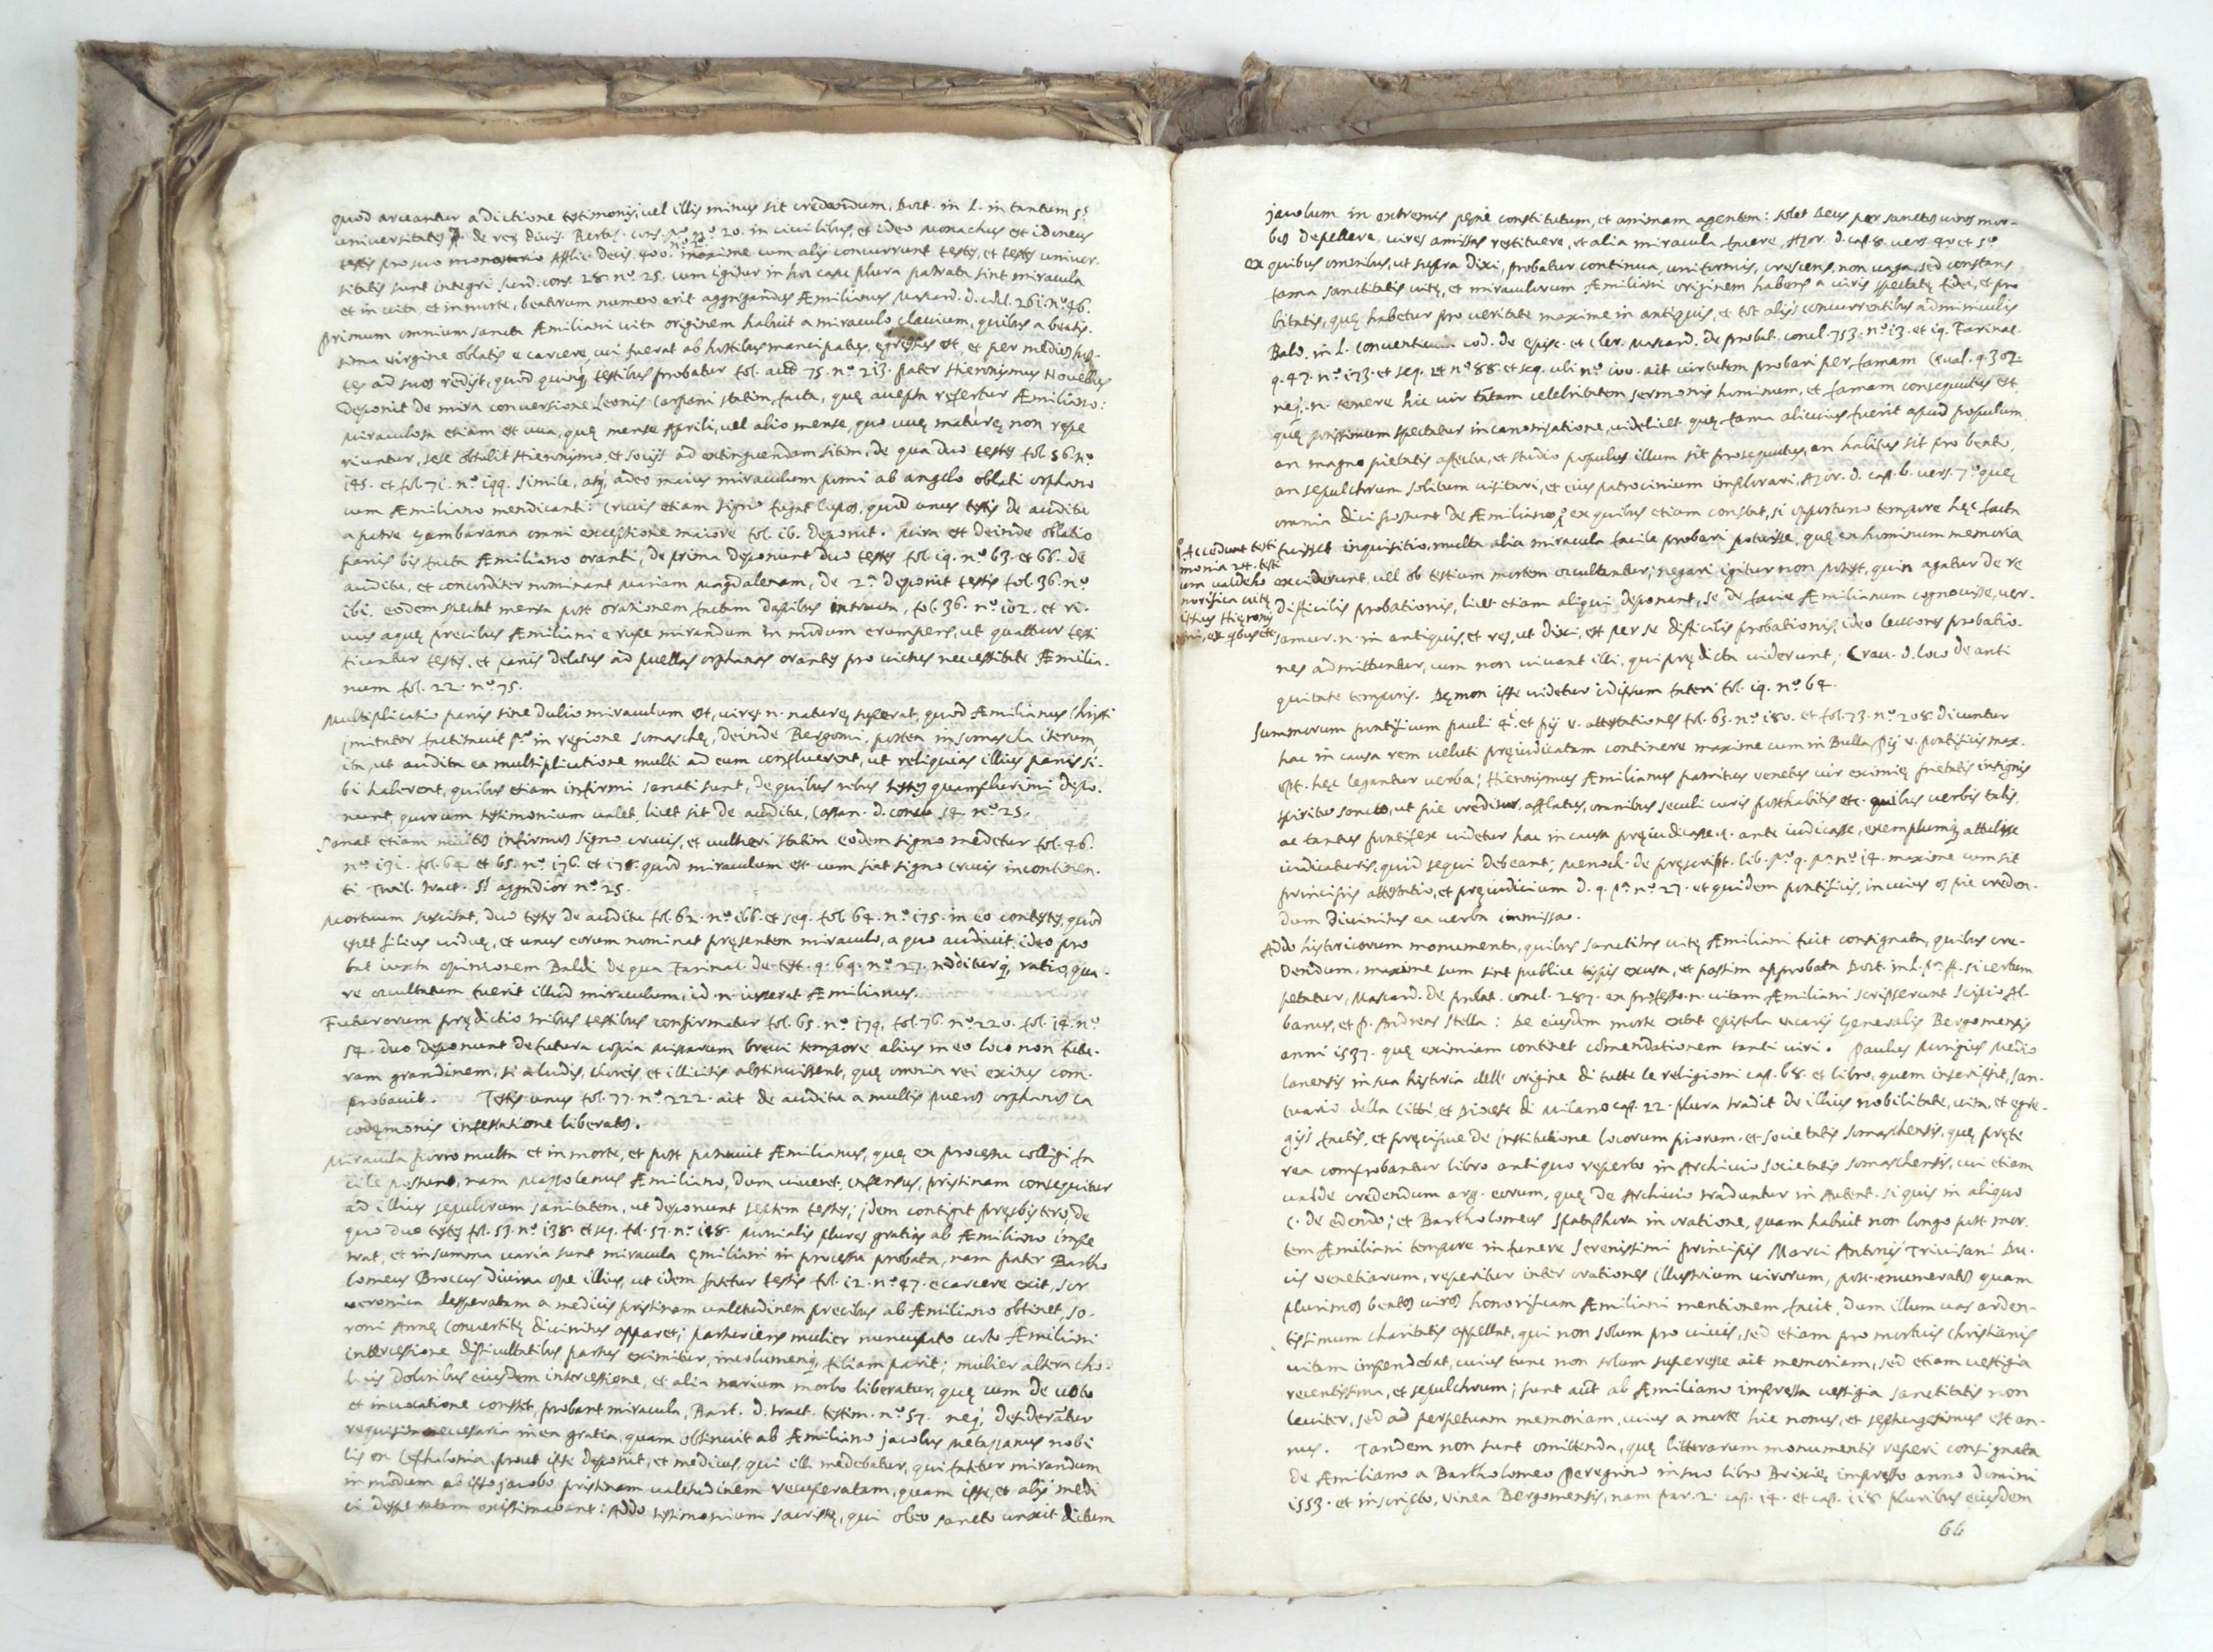 quod arceantur a dictione testimonij, vel illis minus sit credendum. Bart. in L. in tantum §
universitatis ff. de rer. divis. Bertus. cons. p.º n.º 20. in civilibus, et ideo Monachus est idoneus
n.º 2.
testis pro suo monasterio Afflic. decis. 400. maxime cum alij concurrunt testes, et testes univer-
sitatis sunt integri Surd. cons. 28. nº 25. cum igitur in hoc casu plura patrata sint miracula
et in vita et in morte, beatorum numero erit aggregandus Æmilianus Mascard. d. concl. 261. nº 46.
Primum omnium sancta Æmiliani vita originem habuit a miraculo clavium, quibus a beatis-
sima virgine oblatis e carcere, cui fuerat ab hostibus mancipatus, egressus est, et per medios hos-
tes ad suos redijt, quod quinq; testibus probatur fol. aut 75. nº 213. Pater Hieronymus Novellus
deponit de mira conversione Leonis Carpani statim facta, quę accepta refertur Æmiliano:
Miraculosa etiam est uva, quę mense Aprili, vel alio mense, quo uvę maturę non repe
riuntur, sese obtulit Hieronymo, et socijs ad extinguendam sitim, de qua duo testes fol. 56. nº
145. et fol. 71. nº 199. simile, atq; adeo maius miraculum pomi ab angelo oblati orphano
cum Æmiliano mendicanti: Crucis etiam signo fugat lupos, quod unus testis de auditu
a patre Gambarana omni exceptione maiore fol. 16. deponit. Mira est deinde oblatio
panis bis facta Æmiliano oranti, de prima deponunt duo testes fol. 19. nº 63. et 66. de
auditu, et concorditer nominant Mariam Magdalenam, de 2.ª deponit testis fol. 36. nº
101. eodem spectat mensa post orationem factam dapibus instructa, fol. 36. nº 102. et ri-
vus aquę precibus Æmiliani e rupe mirandum in modum erumpens, ut quattuor testi
ficantur testes, et panis delatus ad puellas orphanas orantes pro victus necessitate Æmilia-
num fol. 22. nº 75.
Multiplicatio panis sine dubio miraculum est, vires n. naturę superat, quod Æmilianus Christi
imitator factitavit p.º in regione Somaschę, deinde Bergomi, postea in Somascha iterum,
ita, ut audita ea multiplicatione multi ad eum confluerent, ut reliquias illius panis si-
bi haberent, quibus etiam infirmi sanati sunt, de quibus rebus testes quamplurimi depo-
nunt, quorum testimonium valet, licet sit de auditu, Cassan. d. consu. 54. nº 25.
Sanat etiam multos infirmos signo crucis, et vulneri statim eodem signo medetur fol. 46.
nº 131. fol. 64. et 65. nº 176. et 178. quod miraculum est cum fiat signo crucis incontinen-
ti Troil. tract. § aggredior nº 25.
Mortuum suscitat, duo testes de auditu fol. 62. nº 166. et seq. fol. 64. nº 175. in eo contestes, quod
esset filius viduę, et unus eorum nominat pręsentem miraculo, a quo audivit, ideo pro
bat iuxta opinionem Baldi de qua Farinac. de test. q. 69. nº 27. redditur q; ratio, qua-
re occultatum fuerit illud miraculum, id n. iusserat Æmilianus.
Futurorum prędictio tribus testibus confirmatur fol. 65. nº 179. fol. 76. nº 220. fol. 14. nº
54. duo deponunt de futura copia piparum brevi tempore alias in eo loco non futu-
ram grandinem, si a ludis, choreis, et illicitis abstinuissent, quę omnia rei exitus com-
probavit. Testis unus fol. 77. nº 222. ait de auditu a multis pueros orphanos ca
codęmonis infestatione liberatos.
Miracula porro multa et in morte, et post patravit Æmilianus, quę ex processu colligi fa
cile possunt, nam Mazzolenus Æmiliano, dum viveret, infensus, pristinam consequitur
ad illius sepulcrum sanitatem, ut deponunt septem testes; idem contigit pręsbitero, de
quo duo testes fol. 53. nº 138. et seq. fol. 57. nº 148. Monialis plures gratias ab Æmiliano impe
trat, et in summa varia sunt miracula ęmiliani in processu probata, nam frater Bartho
lomeus Broccus divina ope illius, ut idem fatetur testis fol. 12. nº 47. e carcere exit, Sor
Veronica desperatam a medicis pristinam valetudinem precibus ab Æmiliano obtinet, So-
rori Annę Convertitę divinitus apparet; parturiens mulier nuncupato voto Æmiliani
intercessione difficultatibus partus eximitur, incolumemq; filiam parit; mulier altera cho-
licis doloribus eiusdem intercessione, et alia narium morbo liberatur, quę cum de voto
et invocatione constet, probant miracula, Bart. d. tract. testim. nº 57. neq; desideratur
requisita necessaria in ea gratia, quam obtinuit ab Æmiliano Jacobus Metaxanus nobi
lis ex Cephalonia, prout ipse deponit, et medicus, qui illi medebatur, qui fatetur mirandum
in modum ab ipso Jacobo pristinam valetudinem recuperatam, quam ipse, et alij medi
ci desperatam existimabant. Addo testimonium sacristę, qui oleo sancto unxit dictum
Jacobum in extremis pęne constitutum, et animam agentem: solet Deus per sanctos viros mor-
bos depellere, vires amissas restituere, et alia miracula facere, Azor. d. cap. 8. vers. 4º et 5º
Ex quibus omnibus, ut supra dixi, probatur continua, uniformis, crescens, non vaga, sed constans
fama sanctitatis vitę, et miraculorum Æmiliani originem habens a viris spectatę fidei, et pro
bitatis, quę habetur pro veritate maxime in antiquis, et tot alijs concurrentibus adminiculis
Bald. in L. Conventicula. cod. de episc. et cler. Mascard. de probat. concl. 753. nº 13. et 19. Farinac.
q. 47. nº 173. et seq. et nº 88. et seq. ubi nº 100. ait virtutem probari per famam Crual. q. 302.
neq; n. temere hic vir tantam celebritatem sermonis hominum, et famam consequutus est
quę potissimum spectatur in canonizatione, videlicet quę fama alicuius fuerit apud populum
an magno pietatis affectu, et studio populus illum sit prosequutus, an habitus sit pro beato,
an sepulchrum solitum visitari, et eius patrocinium implorari, Azor. d. cap. 6. vers. 7º quę
omnia dici possunt de Æmiliano, ex quibus etiam constat, si opportuno tempore hęc facta
fuisset inquisitio, multa alia miracula facile probari potuisse, quę ex hominum memoria
Accedunt testi
monia 24. testi
um valde ho
norifica vitę
istius Hierony
mi, ex quibus etc
exciderunt, vel ob testium mortem occultantur; negari igitur non potest, quin agatur de re
difficilis probationis, licet etiam aliqui deponant, se de facie Æmilianum cognovisse, ver-
samur. n. in antiquis, et res, ut dixi, est per se difficilis probationis, ideo leviores probatio-
nes admittuntur, cum non vivant illi, qui prędicta viderunt; Crav. d. loco de anti
quitate temporis. Dęmon ipse videtur id ipsum fateri fol. 19. nº 64.
Summorum Pontificum Pauli 4.i et Pij V. attestationes fol. 63. nº 180. et fol. 73. nº 208. dicuntur
hac in causa rem veluti pręiudicatam continere maxime cum in Bulla Pij V. Pontificis max.
opt. hęc legantur verba; Hieronymus Æmilianus patritius Venetus vir eximię pietatis insignis
spiritu sancto, ut pie creditur, afflatus, omnibus seculi curis posthabitis etc. quibus verbis talis,
ac tantus Pontifex videtur hac in causa pręiudicasse .i. ante iudicasse, exemplumq; attulisse
iudicaturis, quid sequi debeant; Menoch. de pręscript. lib. pº q. pª nº 14. maxime cum sit
principis attestatio, et pręiudicium d. q. pª nº 27. et quidem pontificis, in cuius os pie creden-
dum divinitus ea verba immissa.
Addo historicorum monumenta, quibus sanctitas vitę Æmiliani fuit consignata, quibus cre-
dendum, maxime cum sint publice typis excusa, et passim approbata Bart. in L. pª ff. si certum
petatur, Mascard. de probat. concl. 287. ex professo. n. vitam Æmiliani scripserunt Scipio Al-
banus, et P. Andreas Stella: De eiusdem morte extat epistola Vicarij Generalis Bergomensis
anni 1537. quę eximiam continet cōmendationem tanti viri. Paulus Morigius Medio
lanensis in sua historia dell' origine di tutte le religioni cap. 68. et libro, quem inscripsit, san-
tuario della Città et Diocese di Milano cap. 22. plura tradit de illius nobilitate, vita, et egre-
gijs factis, et pręcipue de institutione locorum piorum, et societatis Somaschensis, quę pręte
rea comprobantur libro antiquo reperto in Archivio societatis Somaschensis, cui etiam
valde credendum arg. eorum, quę de Archivio traduntur in Autent. si quis in aliquo
C. de edendo; et Bartholomeus Spataphora in oratione, quam habuit non longo post mor-
tem Æmiliani tempore in funere Serenissimi Principis Marci Antonij Trivisani Du-
cis Venetiarum, reperitur inter orationes illustrium virorum, post enumeratos quam
plurimos beatos viros honorificam Æmiliani mentionem facit, dum illum vas arden-
tissimum charitatis appellat, qui non solum pro vivis, sed etiam pro mortuis Christianis
vitam impendebat, cuius tunc non solum superesse ait memoriam, sed etiam vestigia
recentissima, et sepulchrum; sunt aūt ab Æmiliano impressa vestigia sanctitatis non
leviter, sed ad perpetuam memoriam, cuius a morte hic nonus, et septuagesimus est an-
nus. Tandem non sunt omittenda, quę litterarum monumentis reperi consignata
de Æmiliano a Bartholomeo Peregrino in suo libro Brixię impresso anno Domini
1553. et inscripto, Vinea Bergomensis, nam par. 2. cap. 14. et cap. 118 pluribus eiusdem
66